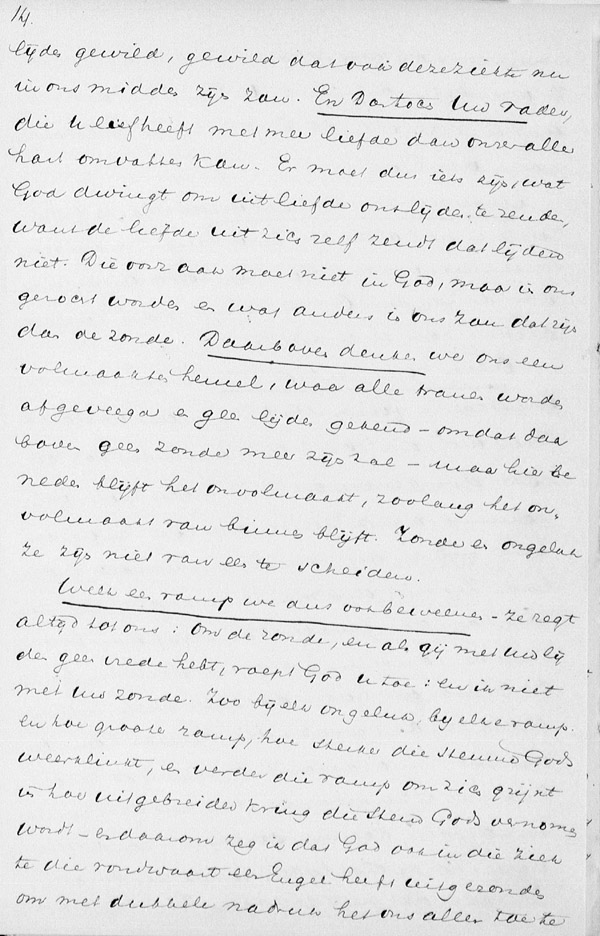 14.
lijden gewild, gewild dat ook deze ziekte nu
in ons midden zijn zou. En Dan toch Uw Vader,
die U liefheeft met meer liefde dan onzer aller
hart omvatten kan. Er moet dus iets zijn, wat
God dwingt om uit liefde ons lijden te zenden,
want de liefde uit zich zelf zendt dat lijden
niet. Die oorzaak moet niet in God, maar in ons
gezocht worden en wat anders in ons zou dat zijn
dan de zonde. Daarboven denken we ons een
volmaakten hemel, waar alle tranen worden
afgeveegd en geen lijden gekend – omdat daar
boven geen zonde meer zijn zal – maar hier be
neden blijft het onvolmaakt, zoolang het on-
volmaakt van binnen blijft. Zonde en ongeluk
ze zijn niet van een te scheiden.
Welk een ramp we dus ook beweenen – ze zegt
altijd tot ons: om de zonde, en als gij met Uw lij
den geen vrede hebt, roept God U toe: en ik niet
met Uw zonde. Zoo bij elk ongeluk, bij elke ramp.
en hoe grooter ramp, hoe sterker die stemme Gods
weerklinkt, en verder die ramp om zich grijpt
in hoe uitgebreider kring die stem Gods vernomen
wordt – en daarom zeg ik dat God ook in die ziek
te die rondwaart een Engel heeft uitgezonden
om met dubbele nadruk het ons allen toe te